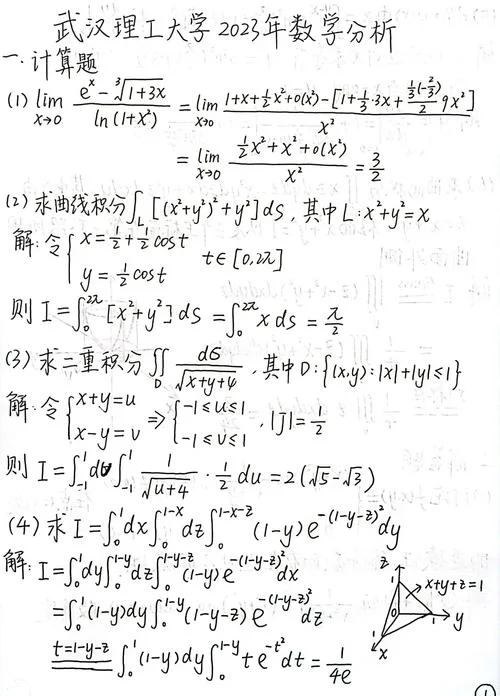 武汉理工大学2023年数学分析
一.计算题
(1) lim_{x→0} \frac{e^x - \sqrt[3]{1+3x}}{ln(1+x²)} = lim_{x→0} \frac{1+x+\frac{1}{2}x²+o(x²)-[1+\frac{1}{3}·3x+\frac{\frac{1}{3}(-\frac{2}{3})}{2}9x²]}{x²}
= lim_{x→0} \frac{\frac{1}{2}x²+x²+o(x²)}{x²} = \frac{3}{2}
(2) 求曲线积分∫_L [(x²+y²)²+y²]ds, 其中L: x²+y²=x
解:令{x=\frac{1}{2}+\frac{1}{2}cost
y=\frac{1}{2}cost t∈[0,2π]
则 I=∫_0^{2π}[x²+y²]ds=∫_0^{2π}xds=\frac{π}{2}
(3) 求二重积分∬_D \frac{dσ}{\sqrt{x+y+4}}, 其中D:{(x,y):|x|+|y|≤1}
解:令{x+y=u ⇒ {-1≤u≤1
x-y=v -1≤v≤1 , |J|=\frac{1}{2}
则 I=∫_{-1}^{1}dv∫_{-1}^{1}\frac{1}{\sqrt{u+4}}·\frac{1}{2}du=2(√5-√3)
(4) 求I=∫_0^1dx∫_0^{1-x}dz∫_0^{1-x-z}(1-y)e^{-(1-y-z)²}dy
解: I=∫_0^1dy∫_0^{1-y}dz∫_0^{1-y-z}(1-y)e^{-(1-y-z)²}dx
=∫_0^1(1-y)dy∫_0^{1-y}(1-y-z)e^{-(1-y-z)²}dz
\xlongequal{t=1-y-z} ∫_0^1(1-y)dy∫_0^{1-y}te^{-t²}dt=\frac{1}{4e}
z
1
x+y+z=1
0
1
y
1
x
1